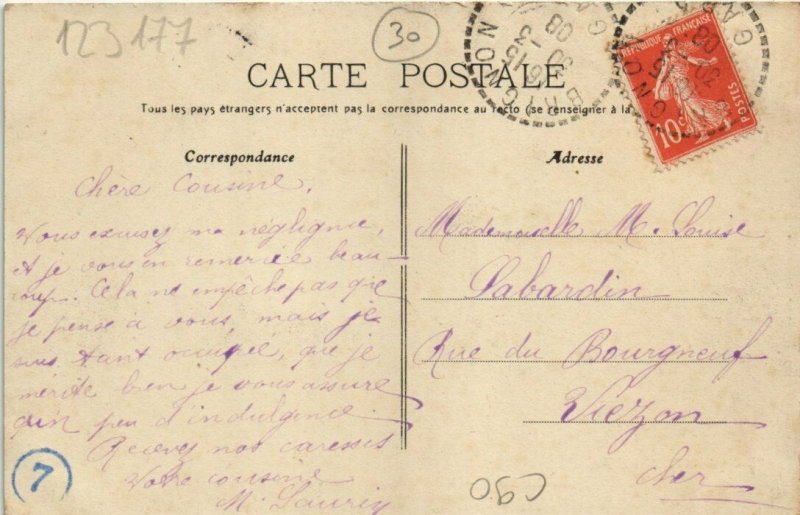 123177
30
CARTE POSTALE
Tous les pays étrangers n'acceptent pas la correspondance au recto (se renseigner à la
Correspondance
Chère Cousine,
Vous excusez ma négligence,
et je vous en remercie beau-
coup. Cela ne empêche pas que
je pense à vous, mais je
suis tant occupée, que je
mérite bien je vous assure
qu'un peu d'indulgence.
Recevez nos caresses
Votre cousine
M. Laurin
7
Adresse
Mademoiselle M. Louise
Labardin
Rue du Bourgneuf
Vierzon
Cher
C90
REPUBLIQUE FRANÇAISE
POSTES
10c
BRIGNON
GARD
16 15
30
08